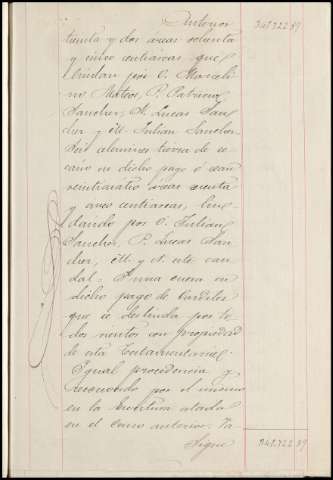 Anterior 348.722 89
treinta y dos áreas sesenta
y cinco centiáreas que
lindan por O. Marceli-
no Mateos, P. Patricio
Sanchez, N. Lucas San-
chez y M. Julian Sanchez.
Seis alamines tierra de se-
cano en dicho pago ó sean
veinticuatro áreas cuenta
y cinco centiáreas, lin-
dando por O. Julian
Sanchez, P. Lucas San-
chez, M. y N. este cau-
dal. Y una cueva en
dicho pago de
que se deslinda por to-
dos vientos con propiedad
de esta Testamentaría.
Igual procedencia y
reconocido por el mismo
en la Escritura citada
en el como anterior. Ta-
Sigue 348.722 89